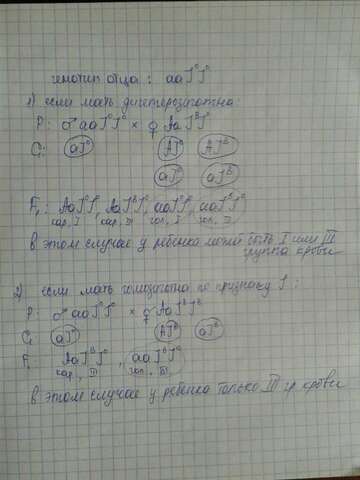 генотип отца: aaI⁰I⁰
1) если мать дигетерозиготна:
P: ♂ aaI⁰I⁰ × ♀ AaI⁰Iᴮ
G: aI⁰ AI⁰ AIᴮ
aI⁰ aIᴮ
F₁: AaI⁰I⁰, AaIᴮI⁰, aaI⁰I⁰, aaIᴮI⁰
кар., I кар., III гол., I гол., III
в этом случае у ребенка может быть I или III
группа крови
2) если мать гомозиготна по признаку I:
P: ♂ aaI⁰I⁰ × ♀ AaIᴮIᴮ
G: aI⁰ AIᴮ aIᴮ
F₁ AaIᴮI⁰, aaIᴮI⁰
кар., III гол., III
в этом случае у ребенка только III гр. крови